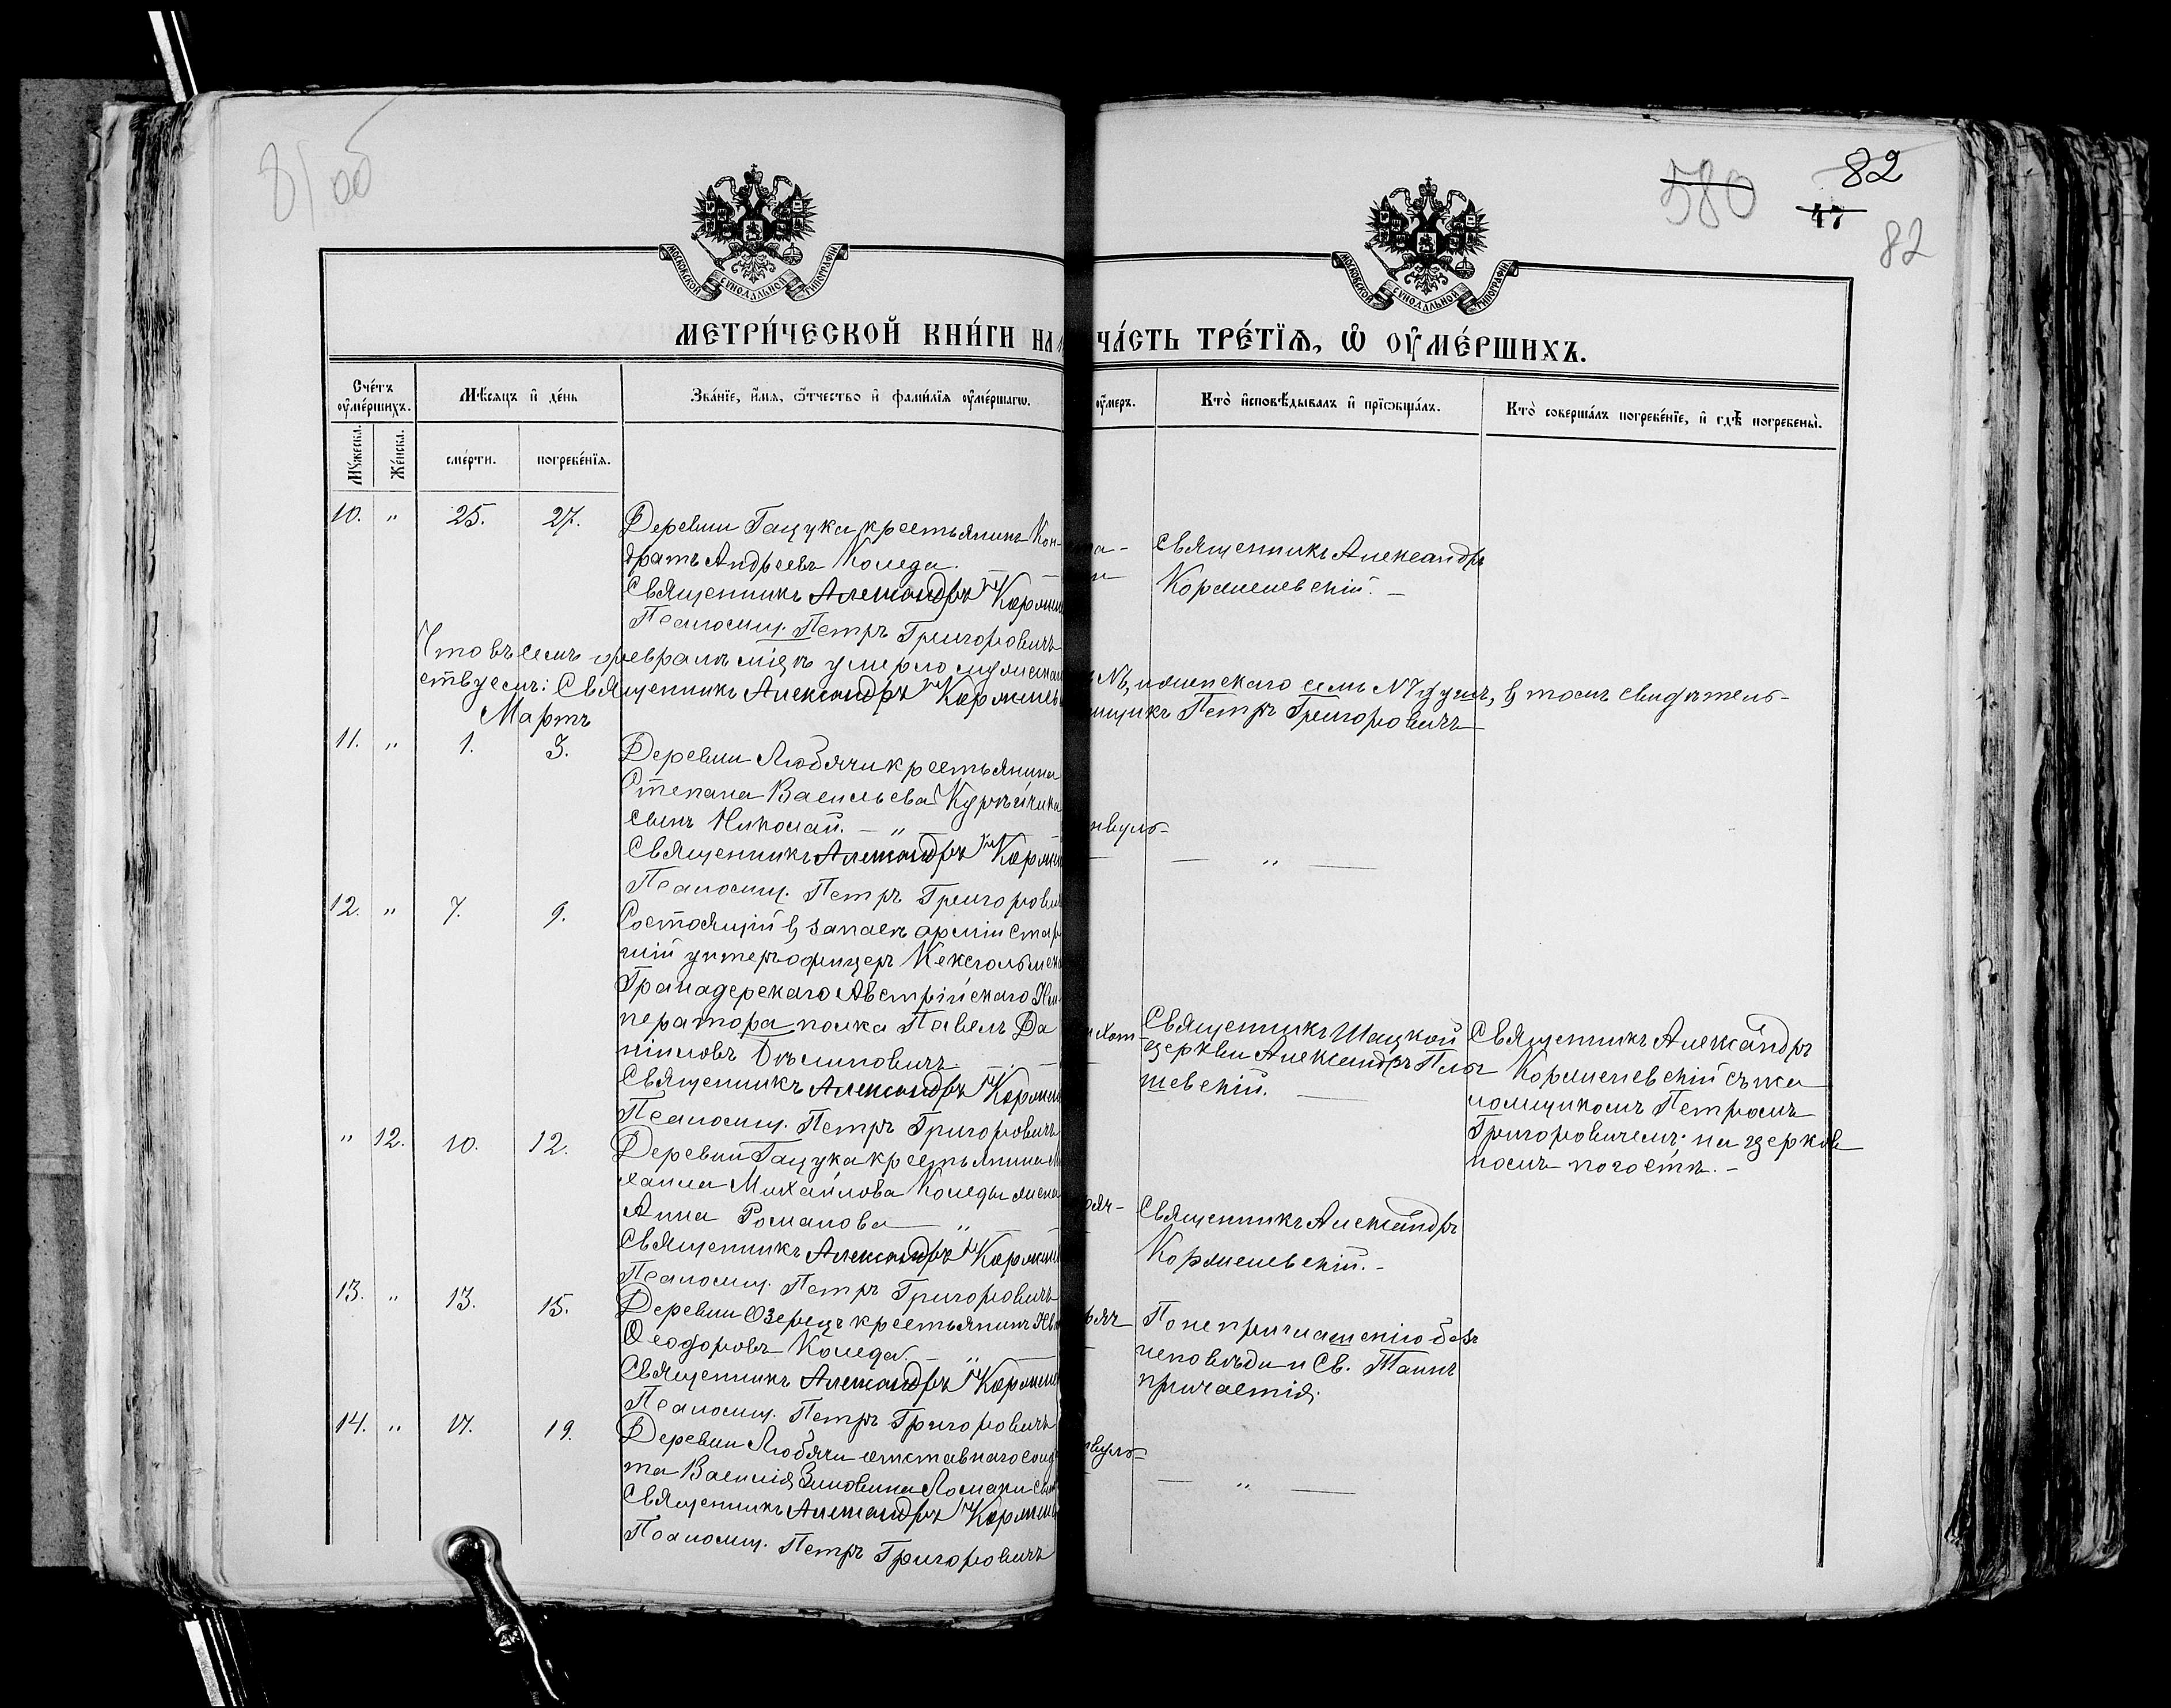 81 об
580
82
47
82
МОСКОВСКОЙ СУНОДАЛЬНОЙ ТИПОГРАФІИ
МОСКОВСКОЙ СУНОДАЛЬНОЙ ТИПОГРАФІИ
МЕТРИ́ЧЕСКОЙ КНИ́ГИ НА
ЧА́СТЬ ТРЕ́ТЇѦ, Ѡ ОУМЕ́РШИХЪ.
Сче́тъ оумершихъ.
Мѣ́сяцъ и де́нь
Зва́нїе, и́мя, ѻтчество и фами́лїя оумершагѡ.
оумеръ.
Кто̀ исповѣ́дывалъ и прїѻбща́лъ.
Кто̀ соверша́лъ погребе́нїе, и гдѣ̀ погребены̀.
Мꙋжеска.
Же́нска.
сме́рти.
погребе́нїя.
10. " 25. 27. Деревни Гацука крестьянинъ Кон-
дратъ Андреевъ Коледа.
Священникъ Александръ Кормил
Псаломщ. Петръ Григоровичъ
Священникъ Александръ
Кормилевскій. –
Что въ семъ февралѣ м‑цѣ умерло мужскаго
ствуемъ: Священникъ Александръ Кормилев
женскаго семь душъ, въ томъ свидѣтель-
щикъ Петръ Григоровичъ
Мартъ
11. " 1. 3. Деревни Любячи крестьянина
Степана Васильева Курьйчика
сынъ Николай. – "
Священникъ Александръ Кормил
Псаломщ. Петръ Григорович
– " –
12. " 7. 9. Состоящій въ запасѣ арміи стар
шій унтеръ офицеръ Кексгольмск
Гранадерскаго Австрійскаго Им-
ператора полка Павелъ Да
ніиловъ
Священникъ Александръ Кормил
Псаломщ. Петръ Григоровичъ
Священникъ Шацкой
церкви Александръ
шевскій.
Священникъ Александръ
Кормилевскій съ пса
ломщикомъ Петромъ
Григоровичемъ на церков
номъ погостѣ. –
" 12. 10. 12. Деревни Гацука крестьянина Ми
хаила Михайлова Коледы жена
Анна Романова "
Священникъ Александръ Кормил
Псаломщ. Петръ Григоровичъ
Священникъ Александръ
Кормилевскій. –
13. " 13. 15. Деревни Озерецъ крестьянинъ Ив
Ѳеодоровъ Коледа. – "
Священникъ Александръ Кормил
Псаломщ. Петръ Григоровичъ
По неприглашенію безъ
исповѣди и Св. Таинъ
причастія.
14. " 17. 19. Деревни Любячи отставнаго солда
та Василія Зиновина Ломаки сын
Священникъ Александръ Кормилев
Псаломщ. Петръ Григоровичъ
– " –